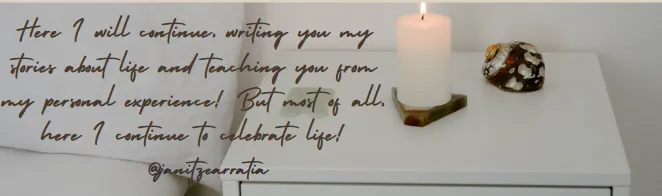 Here I will continue, writing you my
stories about life and teaching you from
my personal experience! But most of all,
here I continue to celebrate life!
@janitzearratia